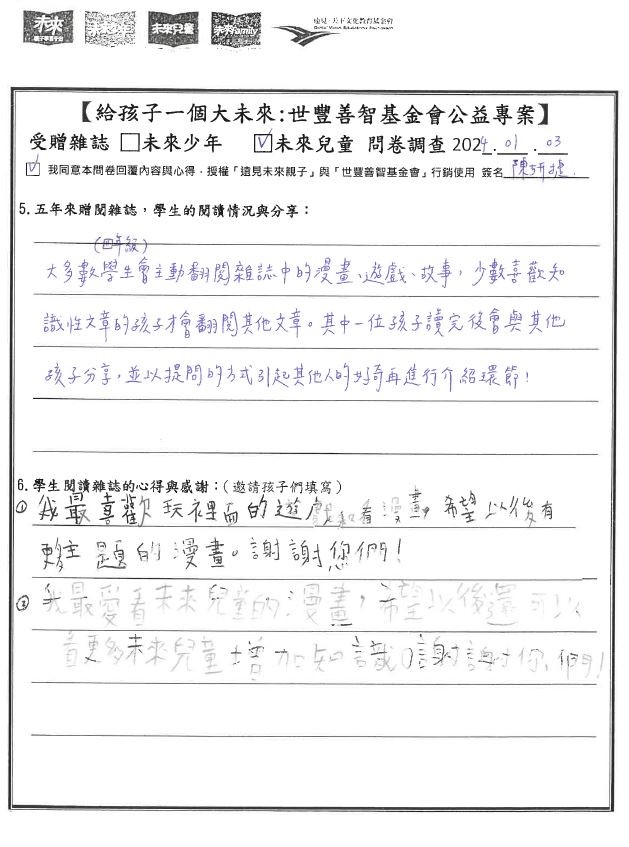 未來 未來少年 未來兒童 未來Family 遠見‧天下文化教育基金會
【給孩子一個大未來:世豐善智基金會公益專案】
受贈雜誌 □未來少年 ☑未來兒童 問卷調查 2024.01.03
☑ 我同意本問卷回覆內容與心得,授權「遠見未來親子」與「世豐善智基金會」行銷使用 簽名
5.五年來贈閱雜誌,學生的閱讀情況與分享:
(四年級)
大多數學生會主動翻閱雜誌中的漫畫、遊戲、故事,少數喜歡知
識性文章的孩子才會翻閱其他文章。其中一位孩子讀完後會與其他
孩子分享,並以提問的方式引起其他人的好奇再進行介紹環節!
6.學生閱讀雜誌的心得與感謝:(邀請孩子們填寫)
①我最喜歡玩裡面的遊戲和看漫畫,希望以後有
題的漫畫。謝謝您們!
②我最愛看未來兒童的漫畫,希望以後還可以
看更多未來兒童增加知識。謝謝你們!